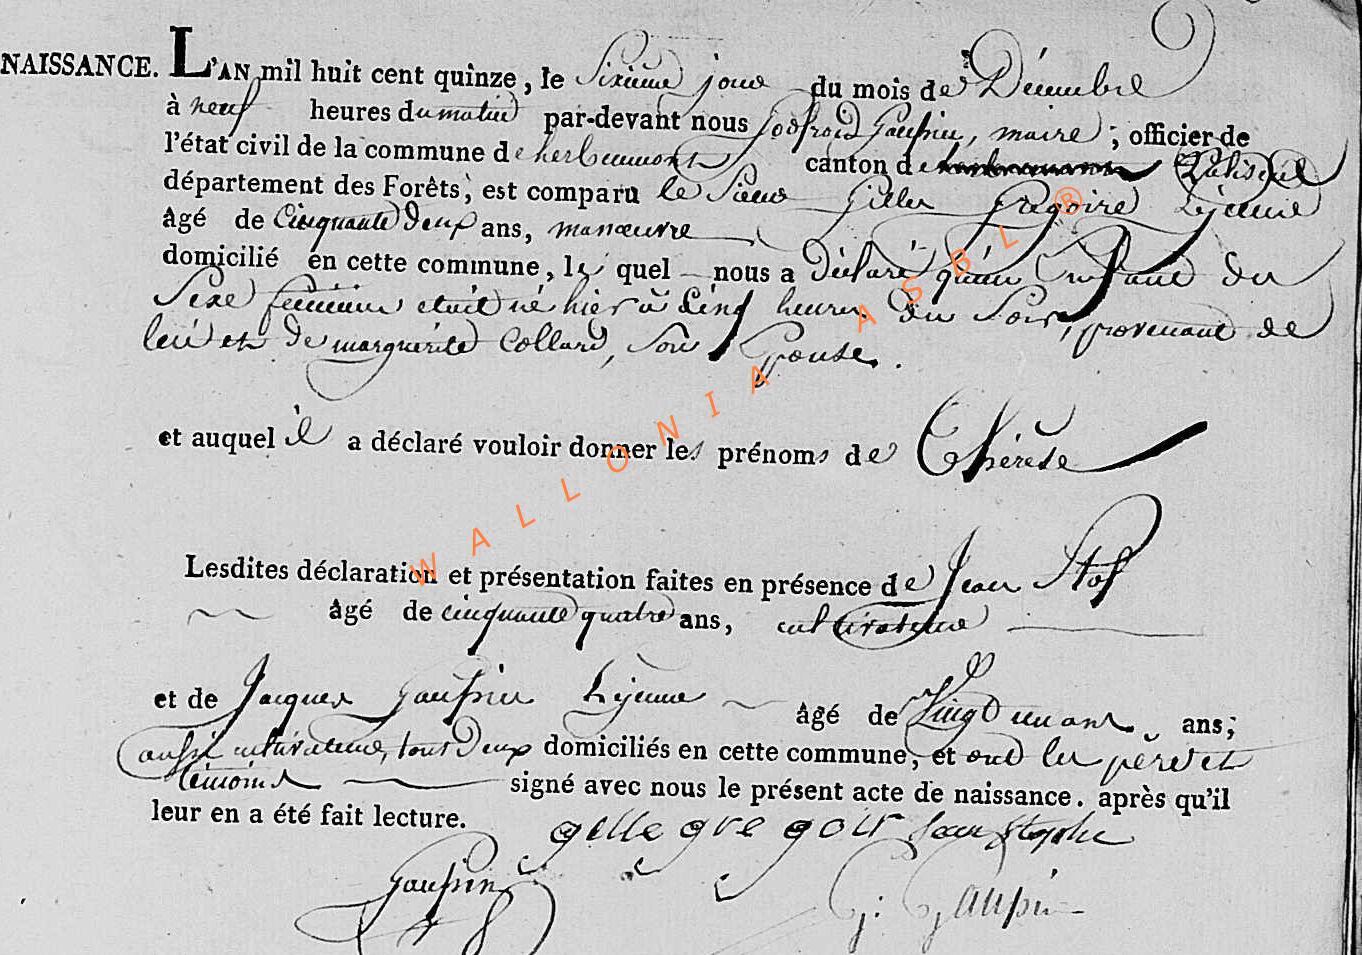 NAISSANCE. L'AN mil huit cent quinze, le Sixieme jour du mois de Décembre
à neuf heures du matin par-devant nous Godfroid Gaussin, maire; officier de
l'état civil de la commune de herbeumont canton de Paliseul
département des Forêts, est comparu le Sieur Gilles Grégoire Lejeune
âgé de Cinquante Deux ans, manœuvre
domicilié en cette commune, le quel nous a Déclaré qu'un Enfant du
Sexe féminin etoit né hier à Cinq heures Du Soir, provenant de
lui et de marguerite Collard, Son Epouse.
et auquel il a déclaré vouloir donner les prénoms de Thérèse
Lesdites déclaration et présentation faites en présence de Jean Stof
âgé de cinquante quatre ans, cultivateur
et de Jacques Gaussin Lejeune âgé de Vingt un ans ans;
aussi cultivateur, tous Deux domiciliés en cette commune, et ont les père et
témoins signé avec nous le présent acte de naissance. après qu'il
leur en a été fait lecture. gille gre goir
Gaussin G: Gaussin
WALLONIA ASBL ®